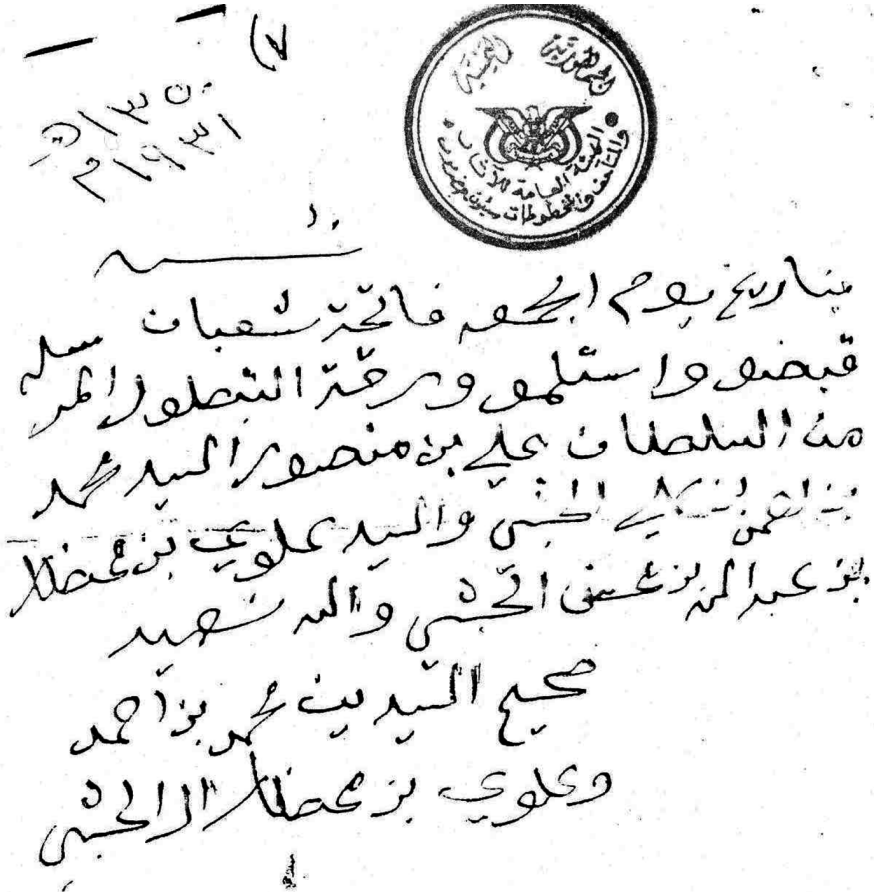 (٧
١٣٥٠هـ
١٩٣١م
الجمهورية اليمنية
الهيئة العامة للآثار
والمتاحف والمخطوطات سيئون حضرموت
بتاريخ يوم الجمعه فاتحة شعبان
قبضو واستلمو ورقة
من السلطان علي بن منصور السيد محمد
الحبشي والسيد علوي بن محضار
بن حسن الحبشي والله شهيد
صحيح السيدين محمد بن احمد
وعلوي بن محضار الحبشي